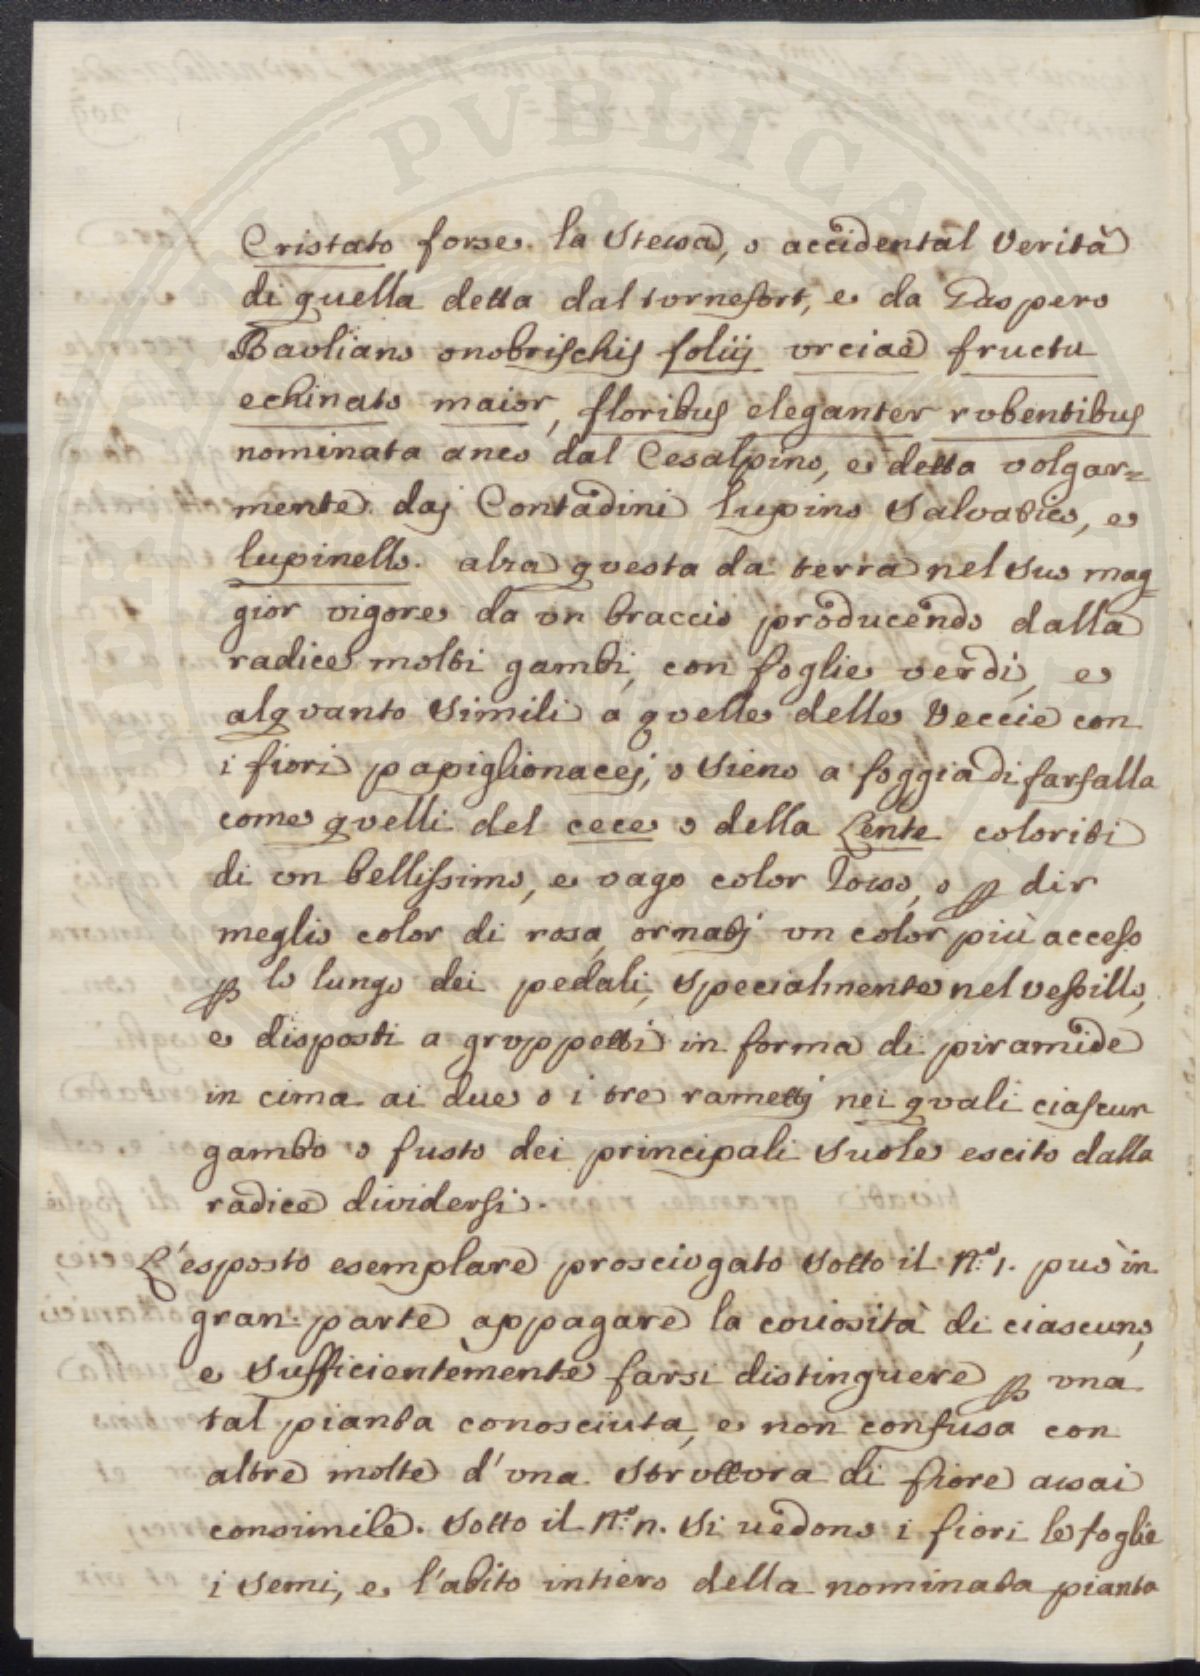 Cristato forse la Stessa, o accidental Verità
di quella detta dal tornefort, e da Gaspero
Bavliano onobrischis foliij vrciae fructu
echinato maior, floribus eleganter rvbentibus
nominata anco dal Cesalpino, e detta volgar=
mente daj Contadini lupino Salvatico, e
lupinello. alza qvesta da terra nel suo mag=
gior vigore da vn braccio prōducendo dalla
radice molti gambi, con foglie verdi, e
alqvanto Simili a qvelle delle Veccie con
i fiori papiglionacej, o Sieno a foggia di farfalla
come qvelli del cece o della Lente coloriti
di vn bellissimo, e vago color Rosso, o ꝑ dir
meglio color di rosa, ornatj vn color più acceso
ꝑ lo lungo dei pedali, Specialmente nel vessillo,
e disposti a grvppetti in forma di piramide
in cima ai due o i tre rametti nei qvali ciascun
gambo o fusto dei principali Suole escito dalla
radice dividersi.
L'esposto esemplare prosciugato Sotto il N.º 1. può in
gran parte appagare la coriosità di ciascuno,
e Sufficientemente farsi distinguere ꝑ vna
tal pianta conosciuta, e non confusa con
altre molte d'vna Strvttvra di fiore assai
consimile. Sotto il N.º n. Si uedono i fiori le foglie
i Semi, e l'abito intiero della nominata pianta